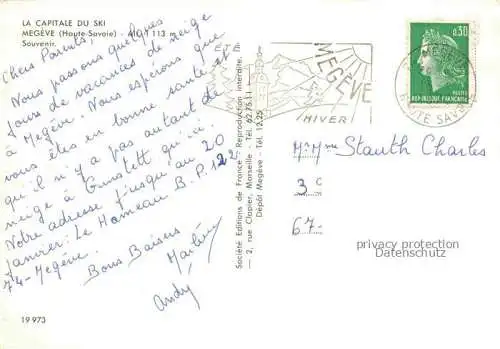 LA CAPITALE DU SKI
MEGÈVE (Haute-Savoie) - Alt. 1 113 m
Souvenir.
Chers Parents,
Nous passons quelques
jours de vacances de neige
à Megève. Nous esperons que
vous êtes en bonne santé et
qu'il n'y a pas autant de
neige à qu'à
Notre adresse jusqu'au 20
janvier: Le Hameau B.P. 122
74-Megève.
Bons Baisers
Martine
Andy
19 973
Société Editions de France - Reproduction interdite.
— 2, rue Clapier, Marseille. Tél. 62.75.11 —
Dépôt Megève - Tél. 12.25
ETÉ
MEGÈVE
HIVER
0,30
POSTES
REPUBLIQUE FRANÇAISE
HAUTE SAVOIE
Mr Mme Stauth Charles
3 c
67-
privacy protection
Datenschutz